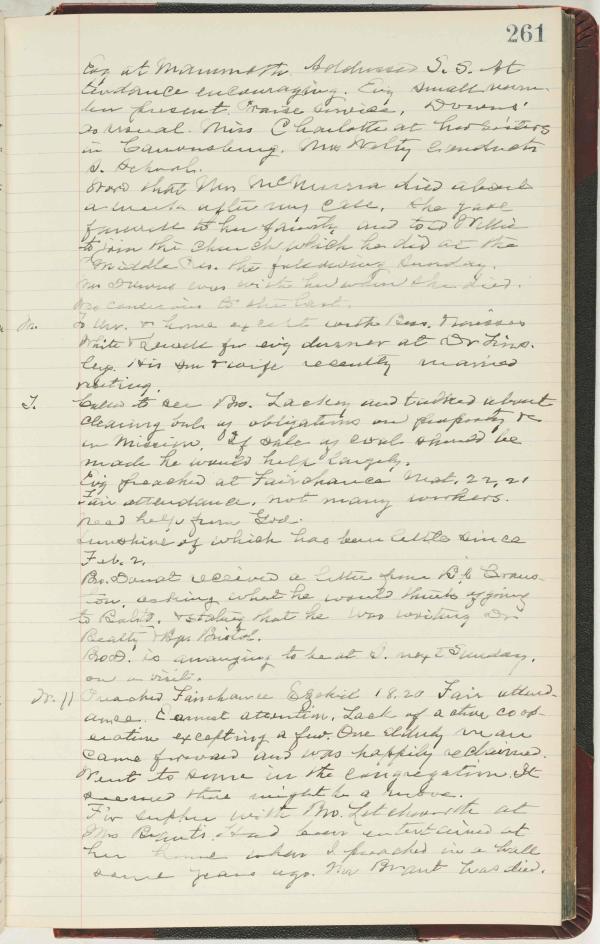 261
Evg at Mammoth. Addressed S. S. At
tendance encouraging. Evg small num-
ber present. Praise service, Downs'
as usual. Miss Charlotte at her sisters
in Canonsburg. Mrs Welty conducts
S. School.
Word that Mrs McMurria died about
a week after my call. She gave
farewell to her family and told Willie
to join the church which he did at the
Middle Pres. the following Sunday.
Mrs Downs was with her when she died.
Was conscious to the last.
M. To Un. & home except with Bess. & misses
White & for evg dinner at Dr
His son & wife recently married
visiting.
T. Called to see Bro. Lackey and talked about
clearing only of obligations on property &c
in Mission. If sale of coal should be
made he would help largely.
Evg preached at Fairchance Mat. 22, 21
Fair attendance. Not many workers.
Need help from God.
Sunshine of which has been little since
Feb. 2.
Bro. received a letter from
asking what he would think of going
to Balto. & stating that he was writing Dr
Beatty & Bps Bristol.
Bro D. is arranging to be at S. next Sunday,
on a visit.
W. 11 Preached Fairchance Ezekiel 18.20 Fair attend-
ance. Earnest attention. Lack of active coop-
eration excepting a few. One elderly man
came forward and was happily reclaimed.
Went to some in the congregation. It
seemed there might be a move.
For supper with Bro. Letchworth at
Mrs Brant's. Had been entertained at
her home when I preached in a hall
some years ago. Mr Brant has died.